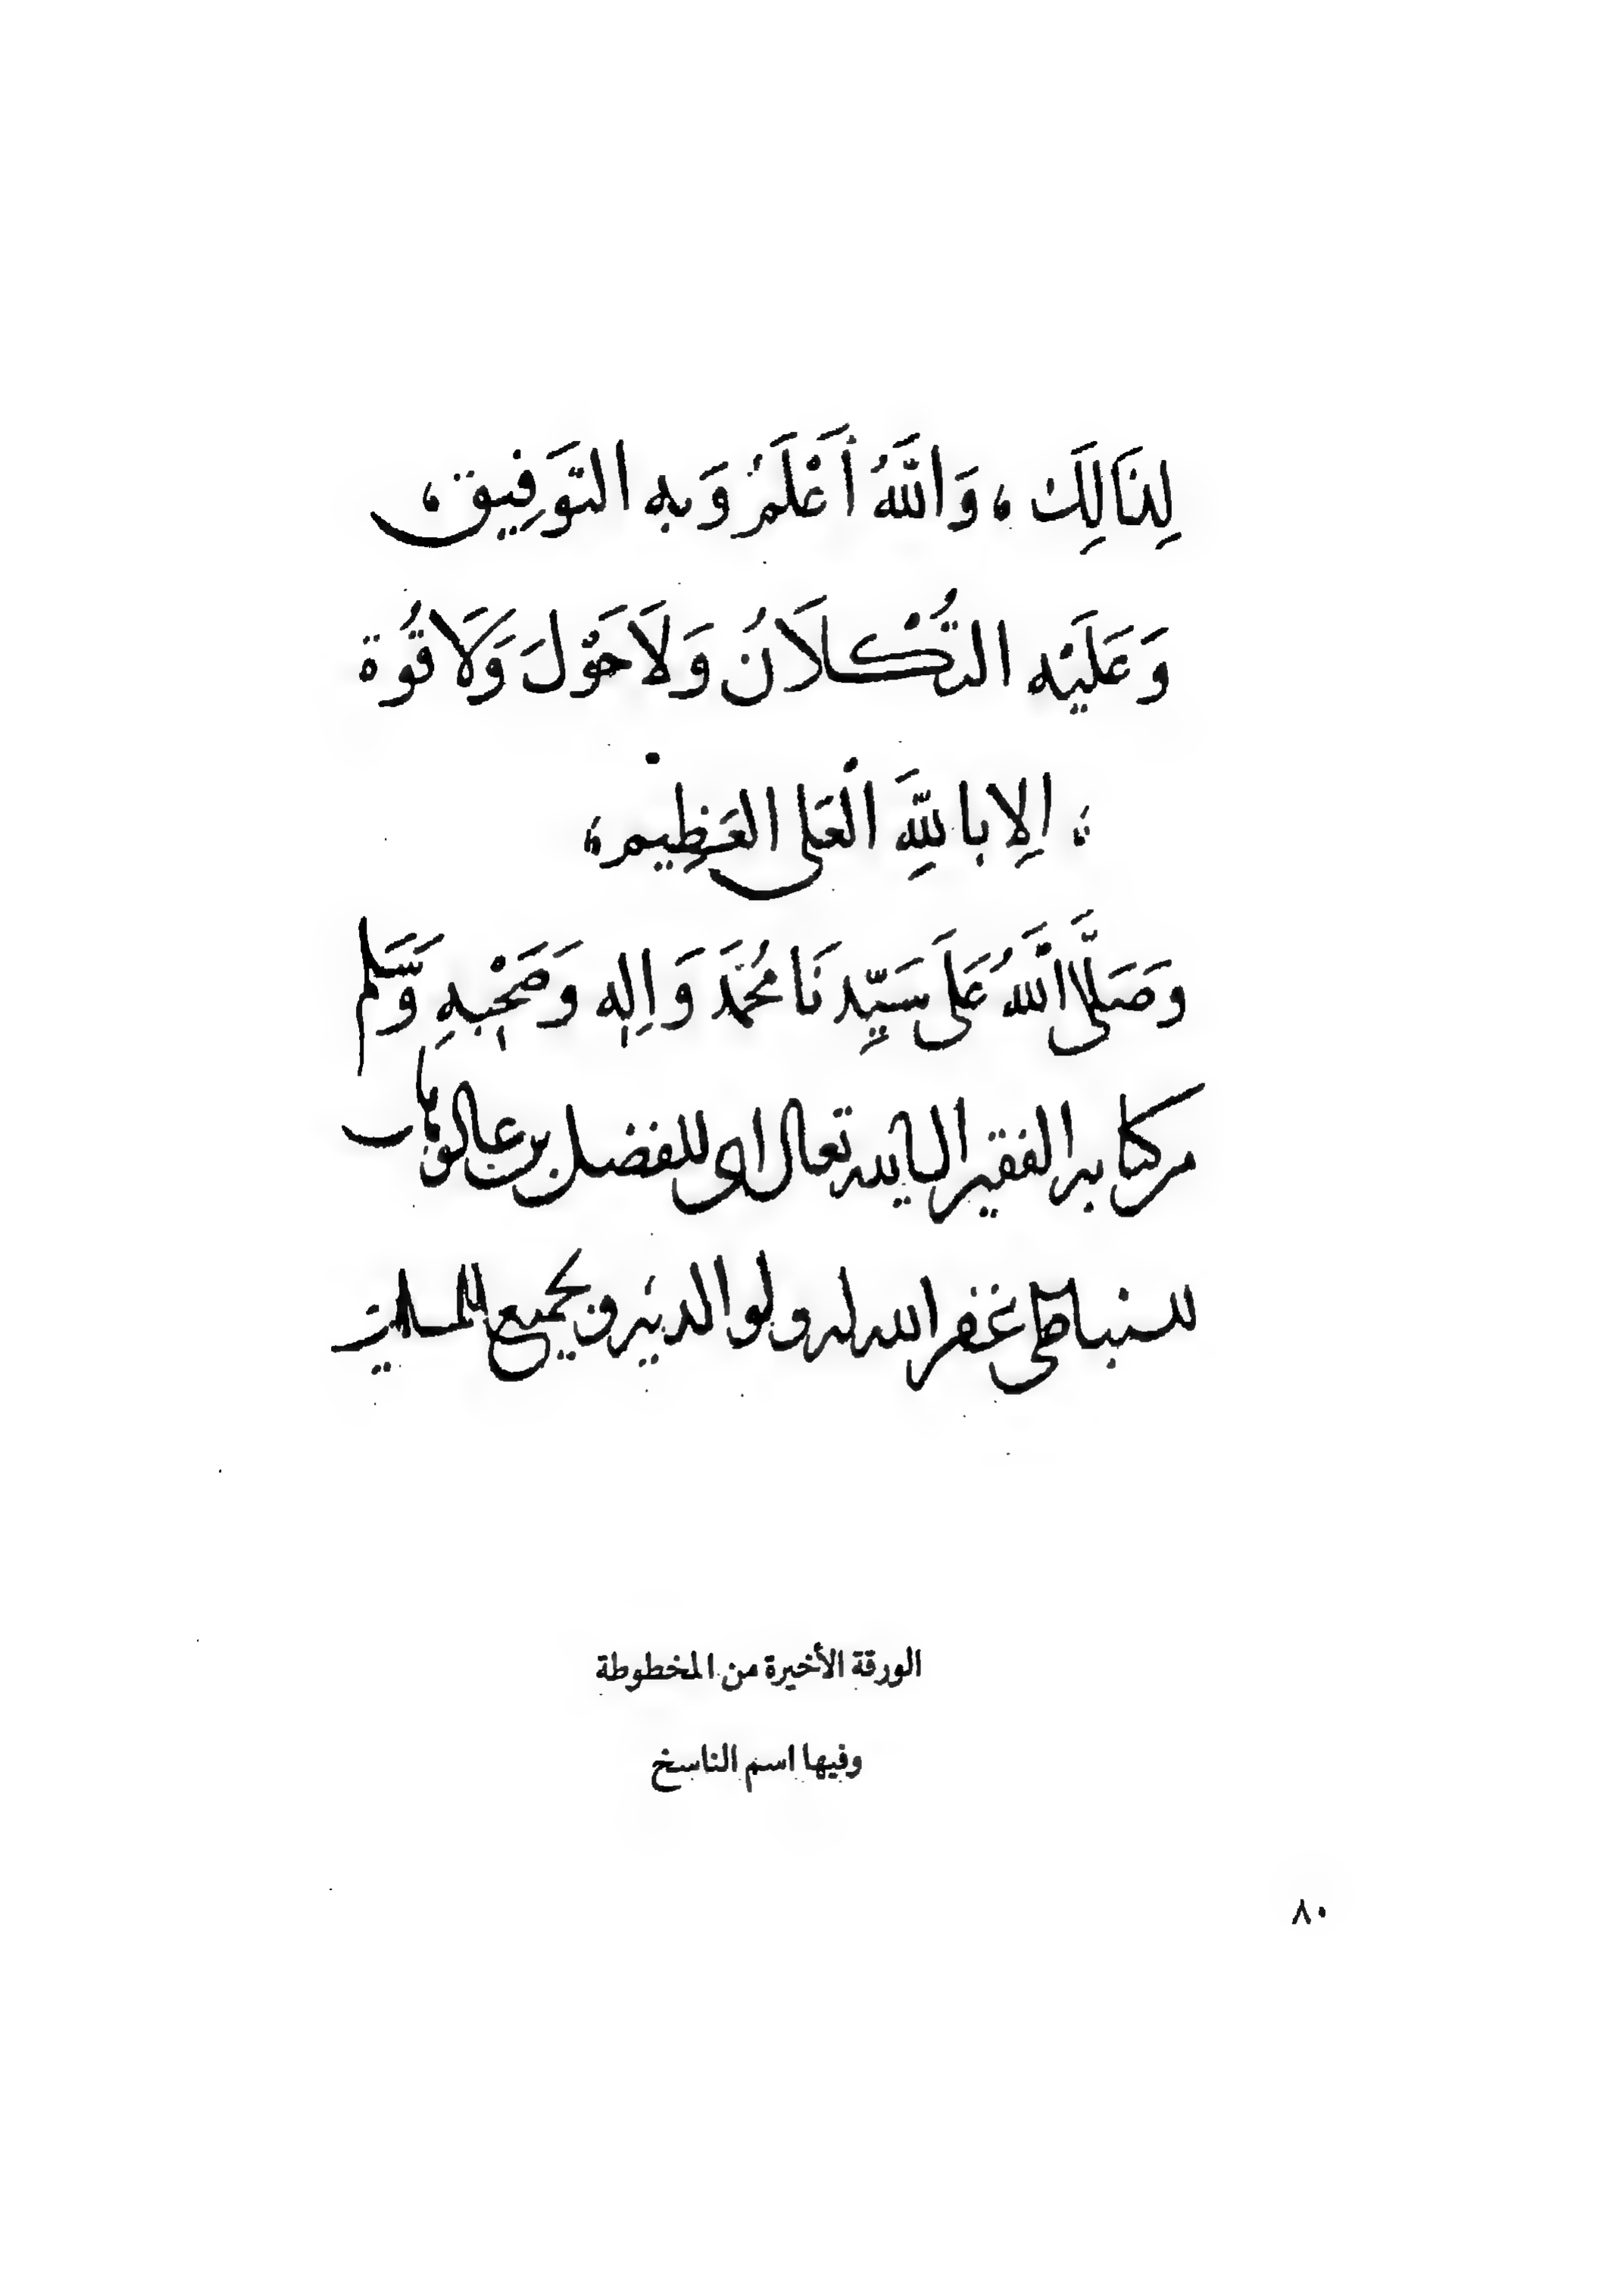 لِنَالِكَ، وَاللَّهُ أَعْلَمُ وَبِهِ التَّوَفِيق،
وَعَلَيْهِ التُّكْلَانُ وَلَاحَوْلَ وَلَا قُوة
، اِلا بِاللَّهِ الْعَلى العَظِيم،
وَصَلَّى اللَّهُ عَلَى سَيِّدِنَا مُحَمَّد وَالِه وَصَحْبِهِ وَسَلم
الفقير الى الله تعالى الفضل بن عبد الوهاب
السنباطى غفر الله له ولوالديه ولجميع المسلمين
الورقة الأخيرة من المخطوطة
وفيها اسم الناسخ
٨٠